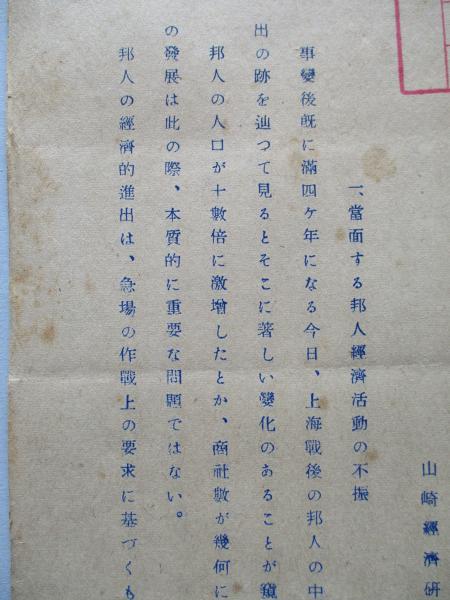 山崎經濟研
一、當面する邦人經濟活動の不振
事變後既に滿四ケ年になる今日、上海戰後の邦人の中
出の跡を辿つて見るとそこに著しい變化のあることが窺
邦人の人口が十數倍に激增したとか、商社數が幾何に
の發展は此の際、本質的に重要な問題ではない。
邦人の經濟的進出は、急場の作戰上の要求に基づくも